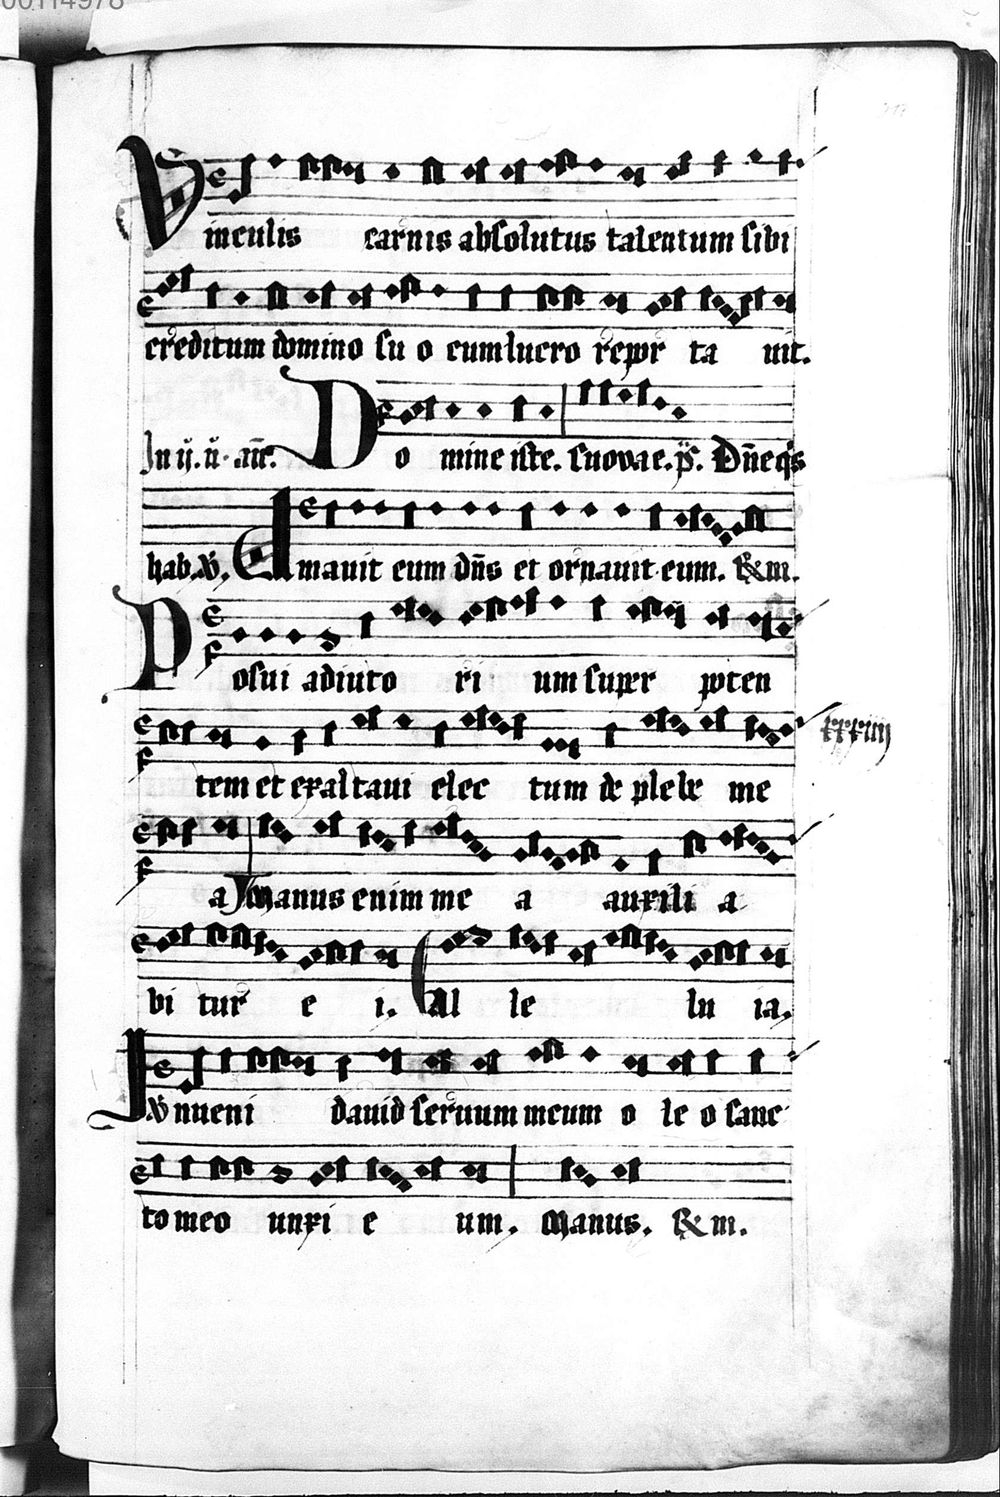 00114978
Vinculis carnis absolutus talentum sibi
creditum domino su o cum lucro repor ta uit.
In ij. ń. añe. Do mine iste. Euouae. ps. Dñe q's
hab. V. Amauit eum dñs et ornauit eum. &m.
Posui adiuto ri um super poten
tem et exaltaui elec tum de plebe me
xxxiiij
a Manus enim me a auxili a
bi tur e i. Al le lu ia.
V Inueni dauid seruum meum o le o sanc
to meo unxi e um. Manus. &m.